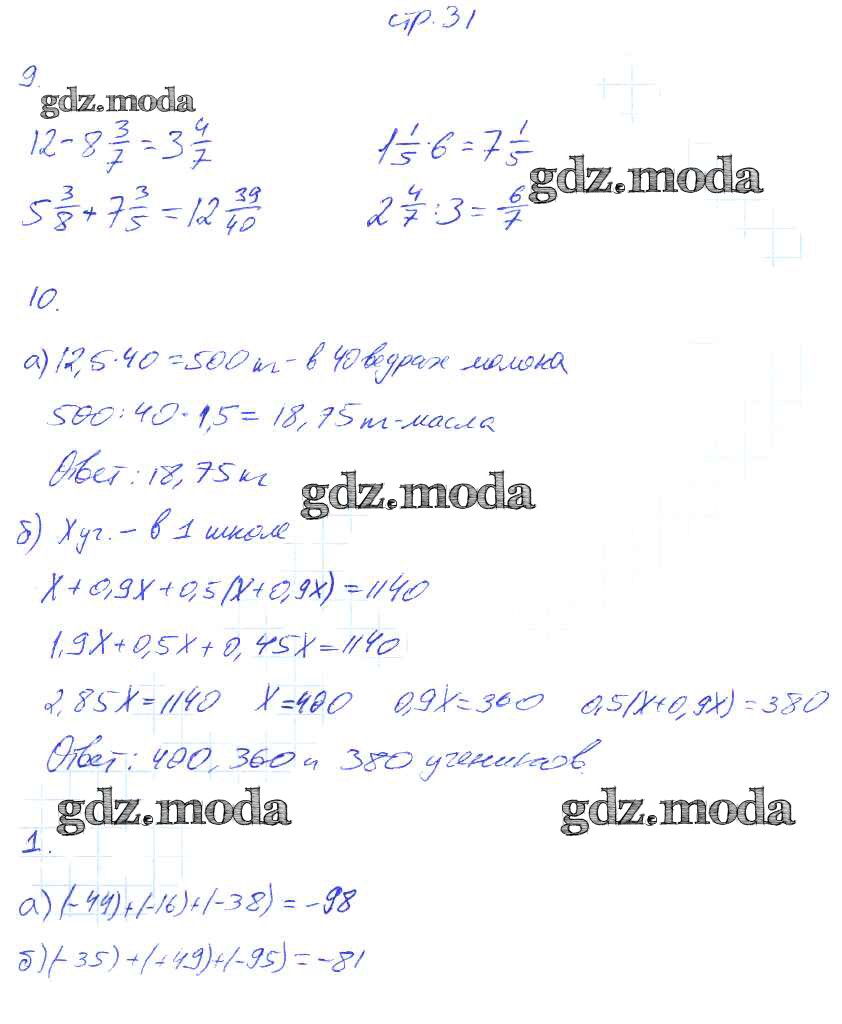 стр. 31
9.
gdz.moda
12 - 8 3/7 = 3 4/7 1 1/5 · 6 = 7 1/5
gdz.moda
5 3/8 + 7 3/5 = 12 39/40 2 4/7 : 3 = 6/7
10.
а) 12,5 · 40 = 500 кг - в 40 ведрах молока
500 : 40 · 1,5 = 18,75 кг - масла
Ответ: 18,75 кг
gdz.moda
б) X уч. - в 1 школе
X + 0,9X + 0,5(X + 0,9X) = 1140
1,9X + 0,5X + 0,45X = 1140
2,85X = 1140 X = 400 0,9X = 360 0,5(X + 0,9X) = 380
Ответ: 400, 360 и 380 учеников.
gdz.moda gdz.moda
1.
а) (-44) + (-16) + (-38) = -98
б) (-35) + (+49) + (-95) = -81